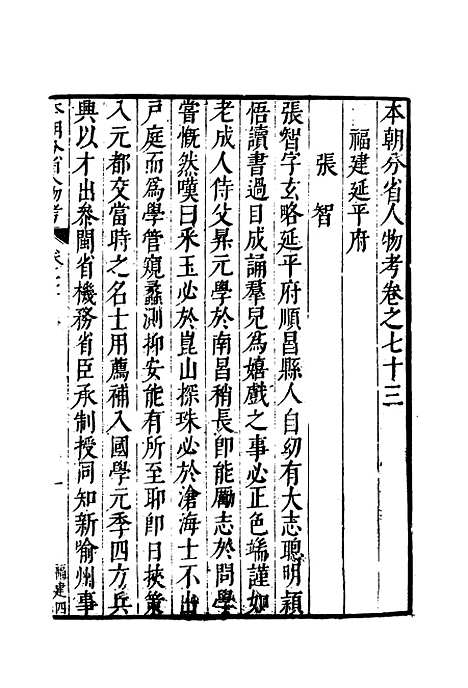 本朝分省人物考卷之七十三
福建延平府
張智
張智字玄略延平府順昌縣人自幼有大志聰明穎
悟讀書過目成誦羣兒為嬉戲之事必正色端謹如
老成人侍父昇元學於南昌稍長卽能勵志於問學
嘗慨然嘆曰釆玉必於崑山探珠必於滄海士不出
戸庭而為學管窺蠡測抑安能有所至耶卽日挾策
入元都交當時之名士用薦補入國學元季四方兵
興以才出叅閩省機務省臣承制授同知新喻州事
本朝分省人物考
一
福建四